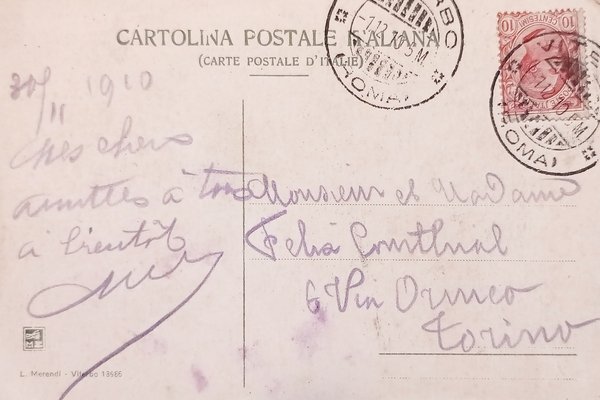 CARTOLINA POSTALE ITALIANA
(CARTE POSTALE D'ITALIE)
30/11 1910
Mes chers
amitiés à tous
à bientôt
Monsieur et Madame
Felix
6 Via Ormea
Torino
-7.12.10.5 M
(ROMA)
10 CENTESIMI 10
(ROMA)
L. Merendi - Viterbo 13986